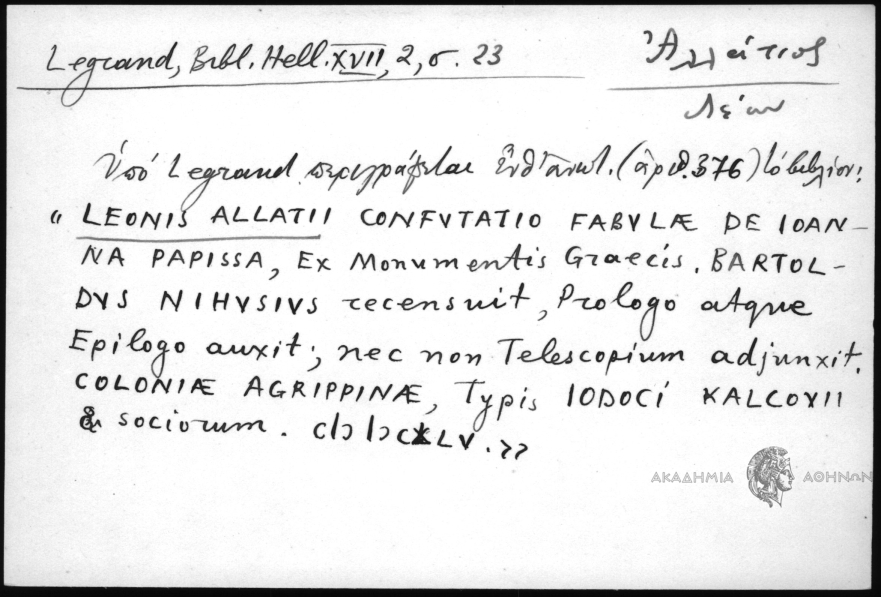 Legrand, Bibl. Hell. XVII, 2, σ. 23
Ἀλλάτιος
Λέων
Ὑπὸ Legrand περιγράφεται ἐνθ' ἀνωτ. (ἀριθ. 376) τὸ βιβλίον:
“ LEONIS ALLATII CONFVTATIO FABVLÆ DE IOAN-
NA PAPISSA, Ex Monumentis Graecis. BARTOL-
DVS NIHVSIVS recensuit, Prologo atque
Epilogo auxit; nec non Telescopium adjunxit.
COLONIÆ AGRIPPINÆ, Typis IODOCI KALCOVII
& sociorum. CIƆ IƆCXLV.»
ΑΚΑΔΗΜΙΑ ΑΘΗΝΩΝ